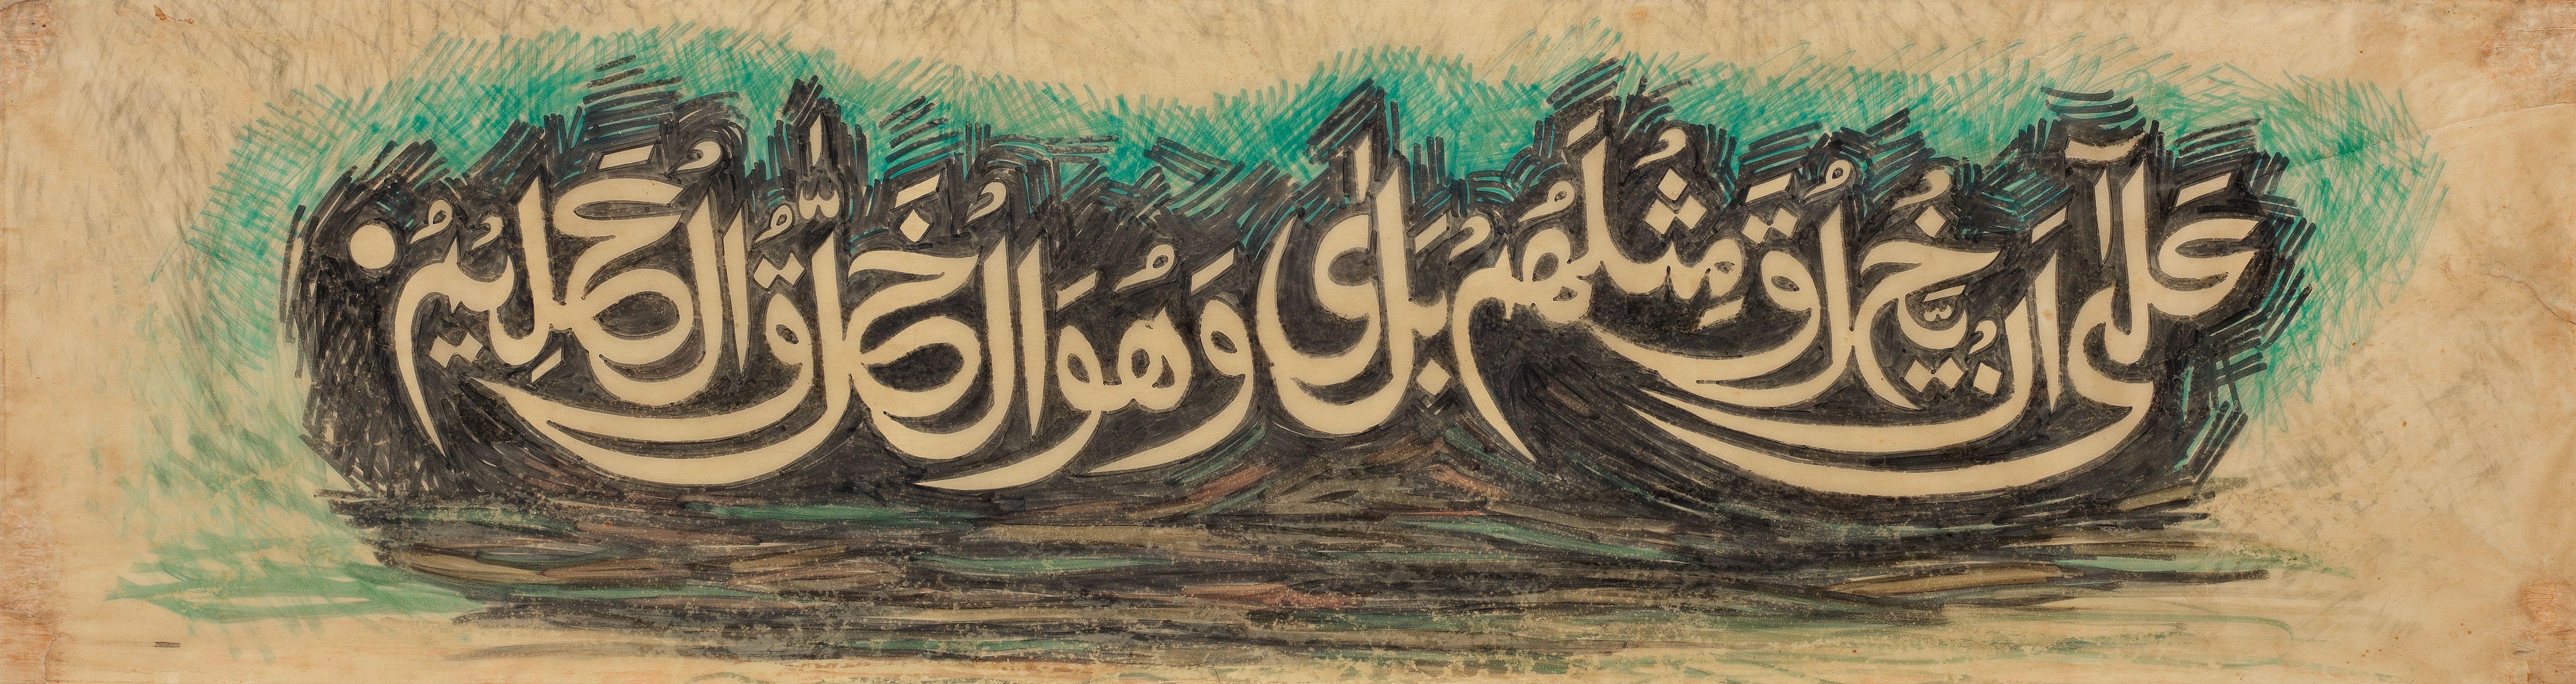 عَلٰٓى اَنْ يَّخْلُقَ مِثْلَهُمْ بَلٰى وَهُوَ الْخَلّٰقُ الْعَلِيْمُ